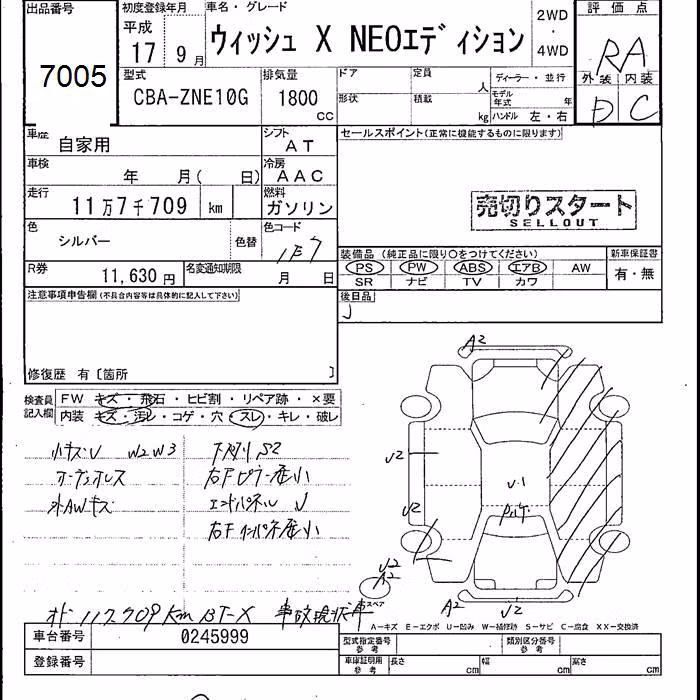 出品番号 初度登録年月 車名・グレード 2WD 評価点
7005 平成 17 9月 ウィッシュ X NEOエディション ・ 4WD RA
型式 排気量 ドア 定員 人 ディーラー・並行 外装 内装
CBA-ZNE10G 1800 cc 形状 積載 kg モデル年式 年 ハンドル 左・右 D C
車歴 自家用 シフト AT セールスポイント(正常に機能するものに限ります)
車検 年 月( 日) 冷房 AAC
走行 11万7千709 km 燃料 ガソリン 売切りスタート
SELLOUT
色 シルバー 色替 色コード 1E7
装備品(純正品に限り○をつけてください) 新車保証書
R券 11,630円 名変通知期限 月 日 PS PW ABS エアB AW 有・無
SR ナビ TV カワ
注意事項申告欄(不具合内容等は具体的に記入して下さい) 後日品
修復歴 有〔箇所 〕
検査員記入欄 FW キズ・飛石・ヒビ割・リペア跡・×要
内装 キズ・汚レ・コゲ・穴・スレ・キレ・破レ
小キズU W2W3
オーディオレス
外AWキズ
右Fピラー歪小
エンドパネル
右Fインパネ歪小
A2
U2
U2
U2
A2
A2
U2
オド 117709Km BT-X 事故現状車
スペア
A-キズ E-エクボ U-凹み W-補修跡 S-サビ C-腐食 XX-交換済
車台番号 0245999 型式指定番号 参考 類別区分番号 参考
登録番号 車庫証明用 参考 長さ cm 幅 cm 高さ cm